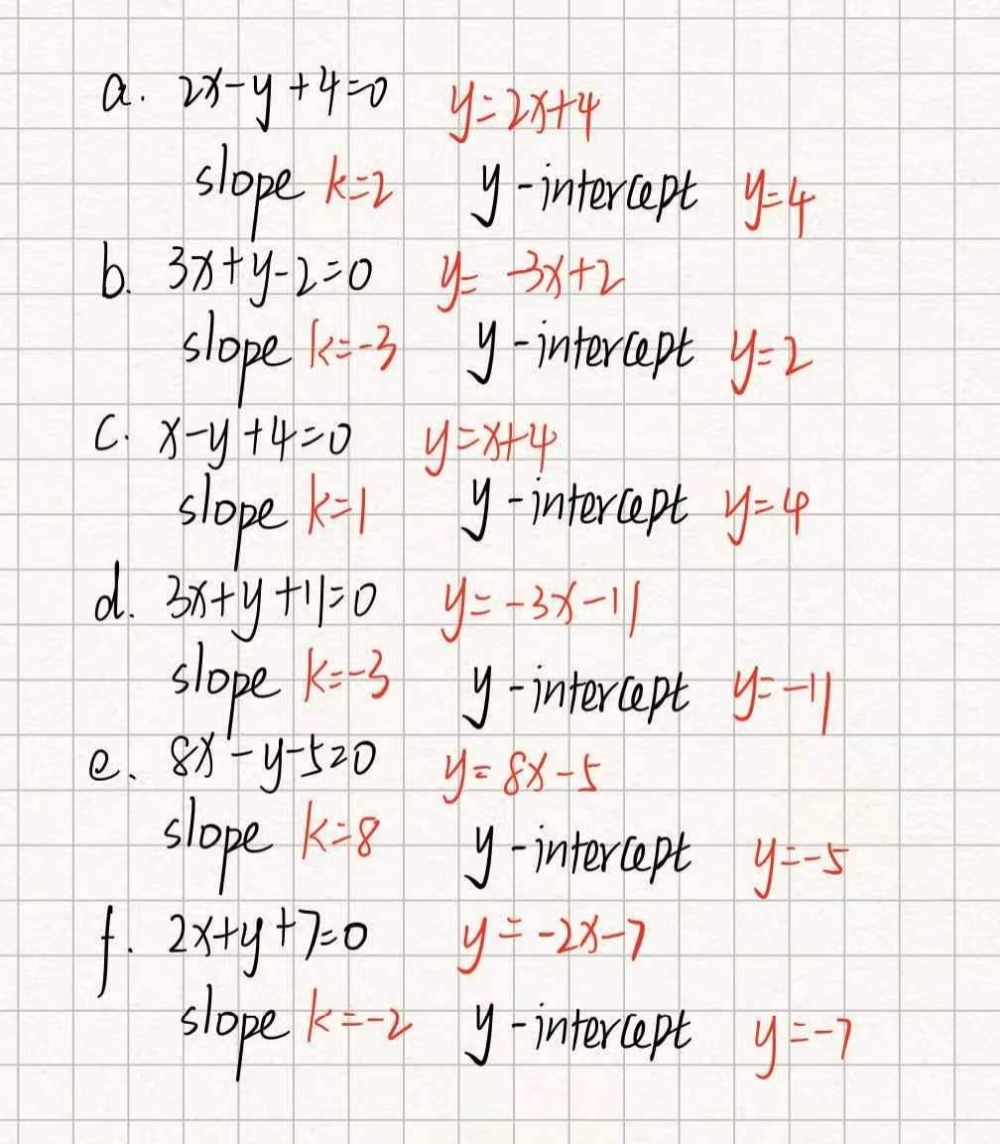 a. 2x-y+4=0 y=2x+4
slope k=2 y-intercept y=4
b. 3x+y-2=0 y=-3x+2
slope k=-3 y-intercept y=2
c. x-y+4=0 y=x+4
slope k=1 y-intercept y=4
d. 3x+y+11=0 y=-3x-11
slope k=-3 y-intercept y=-11
e. 8x-y-5=0 y=8x-5
slope k=8 y-intercept y=-5
f. 2x+y+7=0 y=-2x-7
slope k=-2 y-intercept y=-7